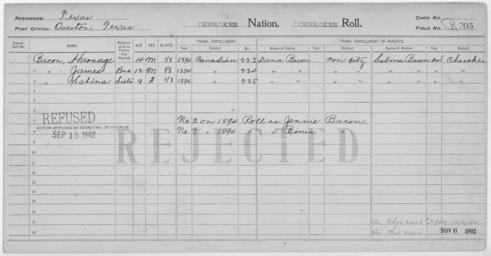 RESIDENCE: Texas
POST OFFICE: Overton, Texas
CHEROKEE Nation. CHEROKEE Roll.
CARD NO.
FIELD NO. R705
Dawes' Roll No. NAME. Relationship to Person First Named AGE SEX BLOOD
TRIBAL ENROLLMENT. Year. District. No.
TRIBAL ENROLLMENT OF PARENTS. Name of Father. Year. District. Name of Mother. Year. District.
Bacon, 14 M 1/8 1896 Canadian 223 Dana Bacon Non City Bacon Cherokee
" James Bro 12 M 1/8 1896 " 224 " " " " " "
" Sister 9 F 1/8 1896 " 225 " " " " " "
REFUSED
ACTION APPROVED BY SECRETARY OF INTERIOR
SEP 15 1902
No. 2 on 1896 Roll as Jennie Bacon.
No. 3 " 1896 " "
REJECTED
NOV 6 1902